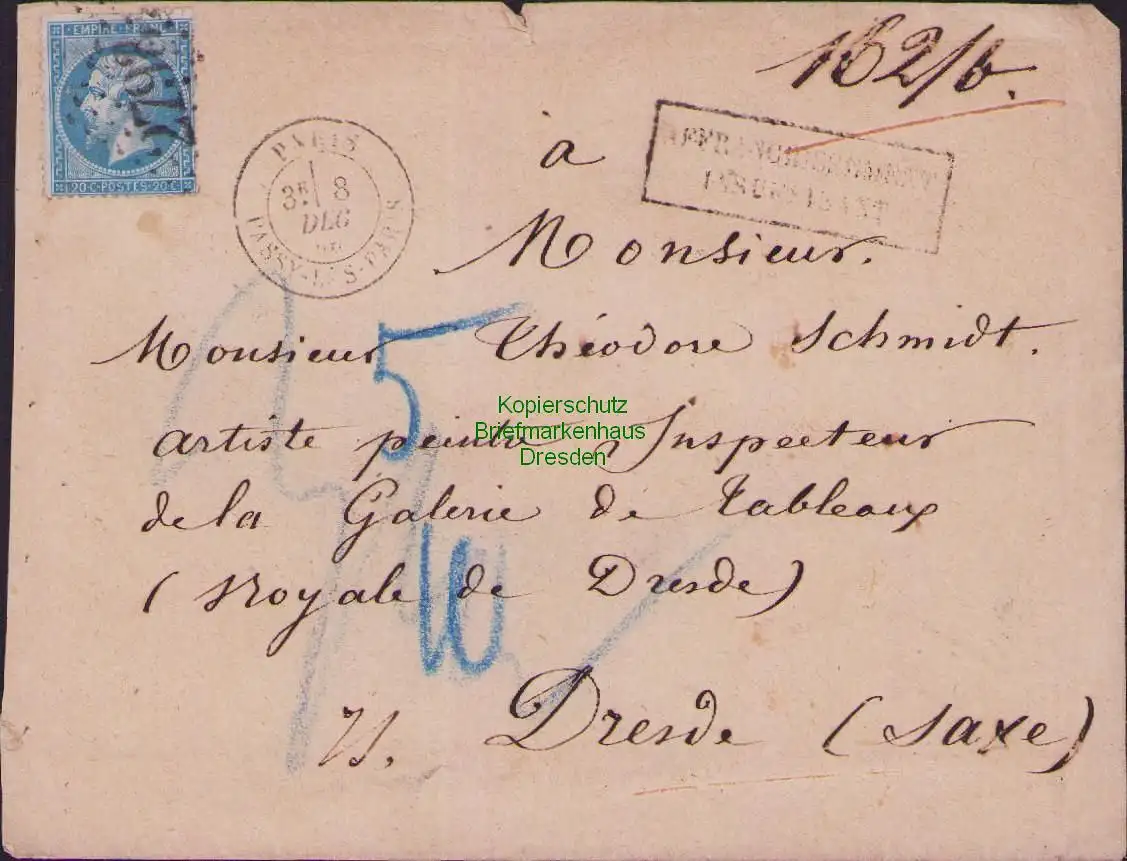 EMPIRE FRANC
20 C-POSTES-20 C
182/6.
PARIS
3E 8
DEC
PASSY-LES-PARIS
AFFRANCHISSEMENT
INSUFFISANT
à
Monsieur.
Monsieur Théodore Schmidt.
artiste peintre Inspecteur
de la Galerie de Tableaux
(Royale de Dresde)
Dresde (Saxe)
5
10
Kopierschutz
Briefmarkenhaus
Dresden